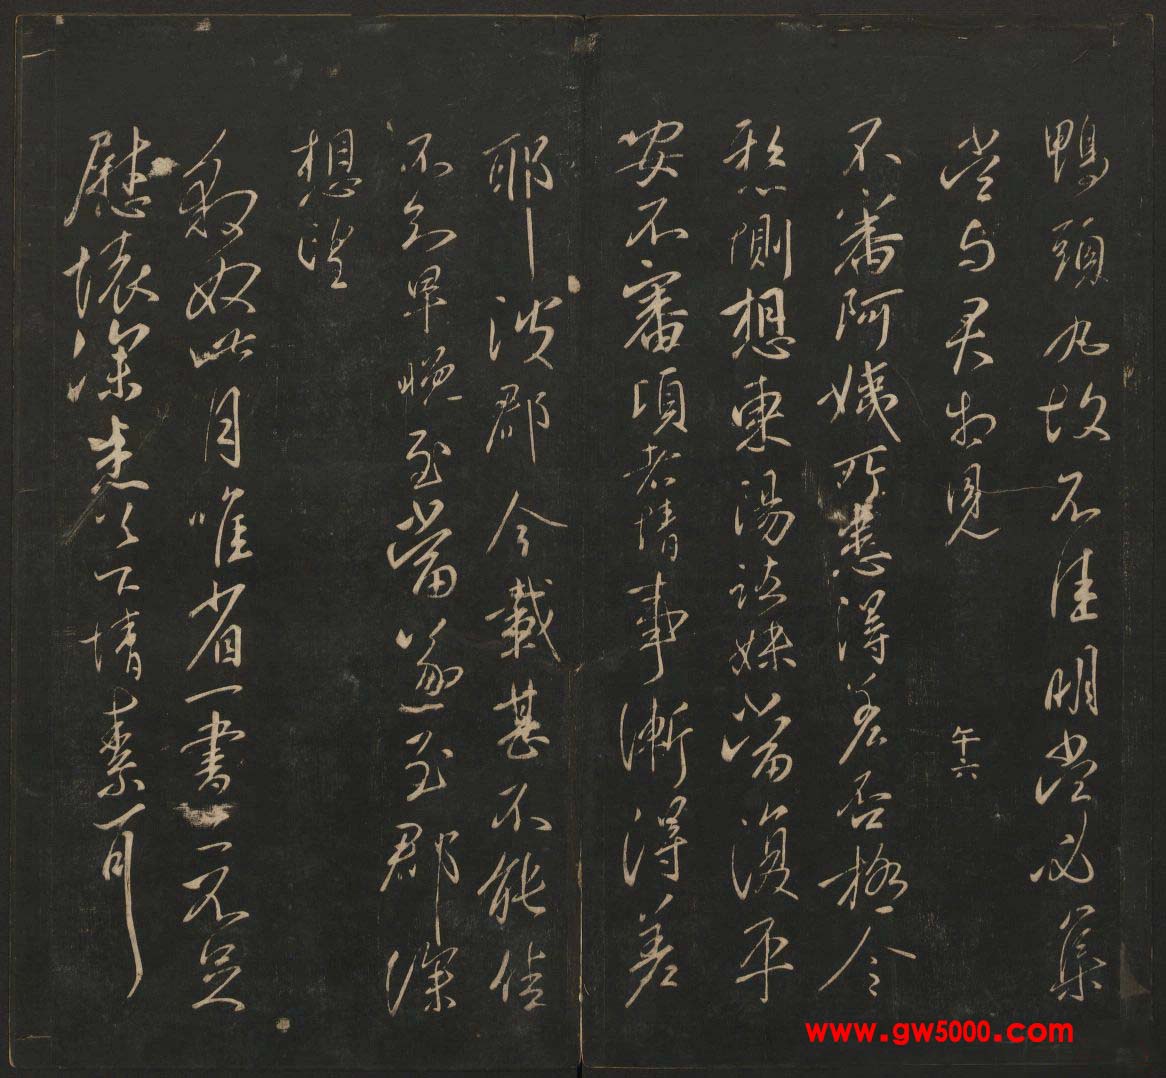 鴨頭丸故不佳明當必集
當與君相見
不審阿姨所患得差否極令
愁惻想東陽諸妹當復平
安不審頃者情事漸得差
耶護郡今載甚不能佳
不知早晚至當遂至郡深
想望
敬奴此月唯省一書亦不足
慰懷深悉之下情素可
午六
www.gw5000.com